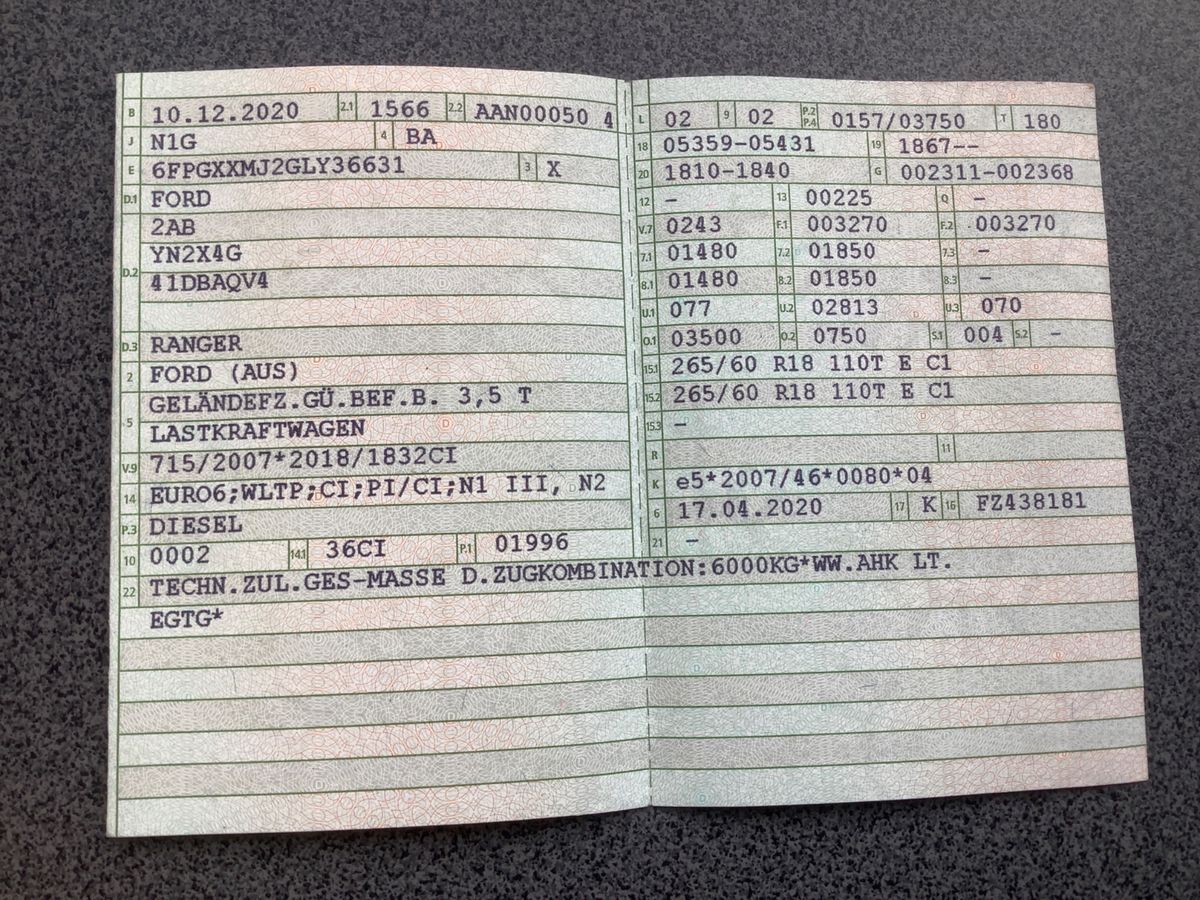 B 10.12.2020 2.1 1566 2.2 AAN00050 4
J N1G 4 BA
E 6FPGXXMJ2GLY36631 3 X
D.1 FORD
2AB
D.2 YN2X4G
41DBAQV4
D.3 RANGER
2 FORD (AUS)
5 GELÄNDEFZ.GÜ.BEF.B. 3,5 T
LASTKRAFTWAGEN
V.9 715/2007*2018/1832CI
14 EURO6;WLTP;CI;PI/CI;N1 III, N2
P.3 DIESEL
10 0002 14.1 36CI P.1 01996
22 TECHN.ZUL.GES-MASSE D.ZUGKOMBINATION:6000KG*WW.AHK LT.
EGTG*
L 02 9 02 P.2 P.4 0157/03750 T 180
18 05359-05431 19 1867--
20 1810-1840 G 002311-002368
12 - 13 00225 Q -
V.7 0243 F.1 003270 F.2 003270
7.1 01480 7.2 01850 7.3 -
8.1 01480 8.2 01850 8.3 -
U.1 077 U.2 02813 U.3 070
O.1 03500 O.2 0750 S.1 004 S.2 -
15.1 265/60 R18 110T E C1
15.2 265/60 R18 110T E C1
15.3 -
R 11
K e5*2007/46*0080*04
6 17.04.2020 17 K 16 FZ438181
21 -